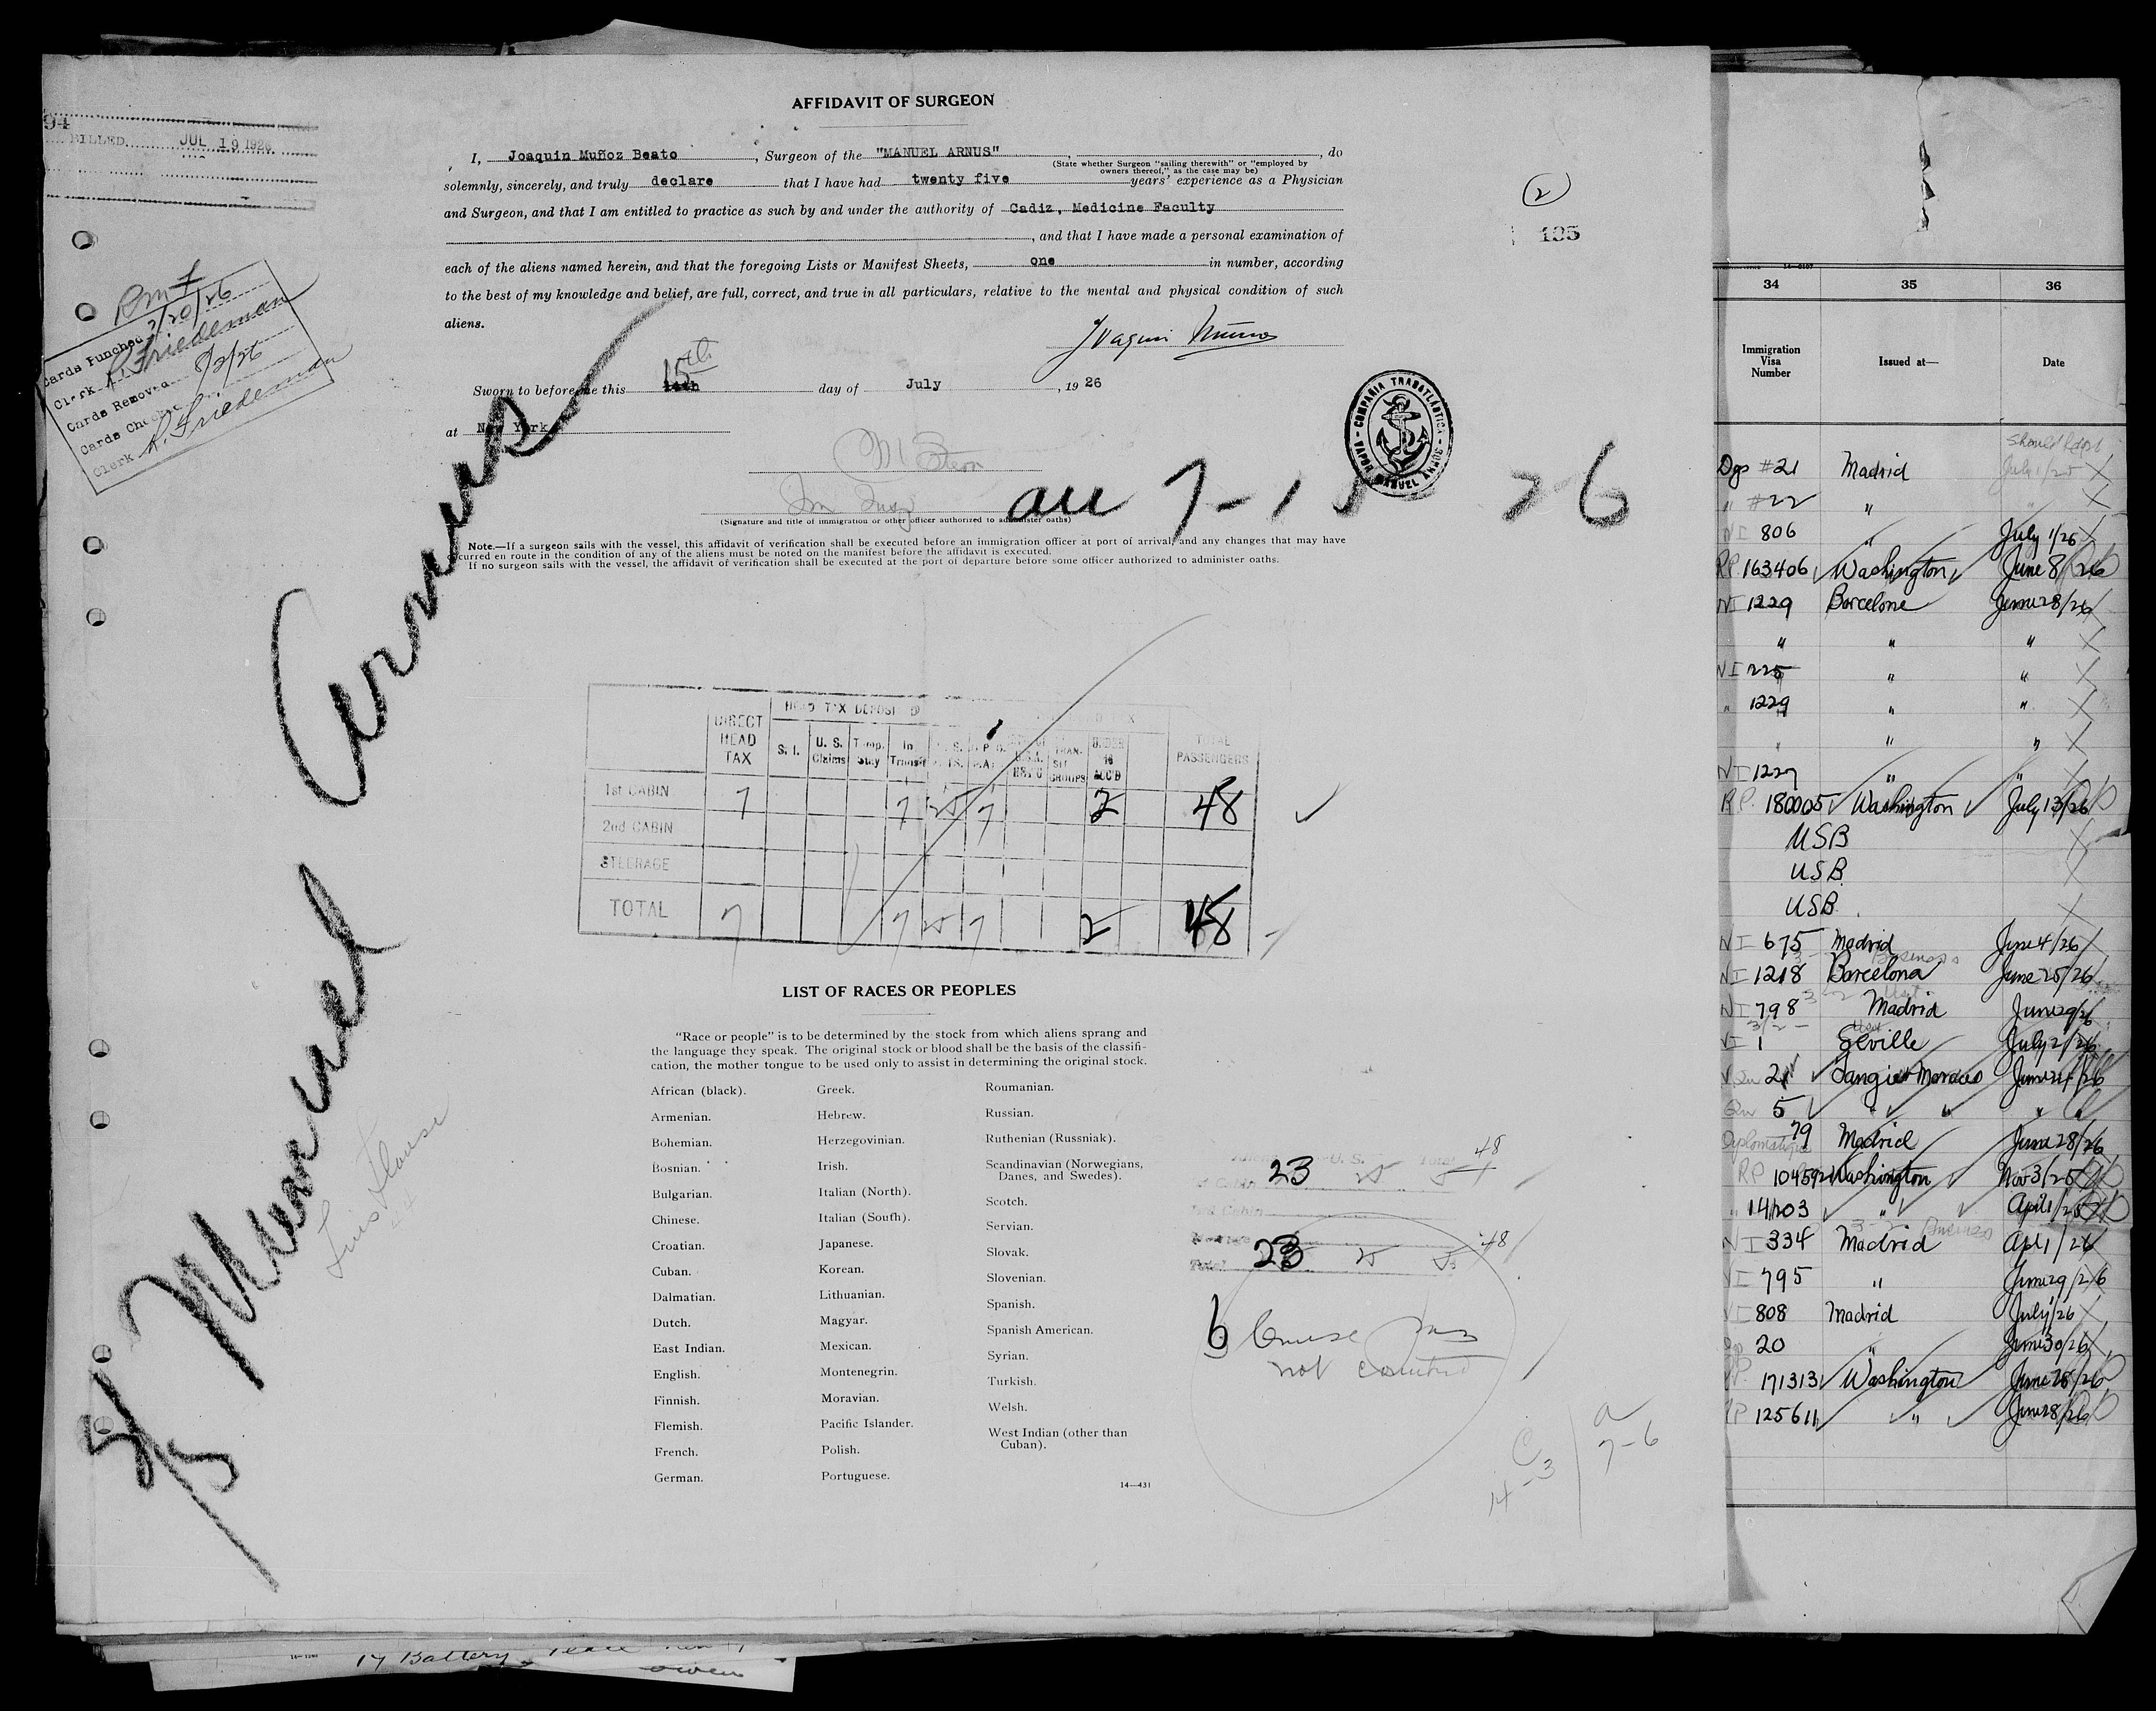 94
BILLED JUL 19 1926
Cards Punched 7/20/26
Clerk R. Friedeman
Cards Removed 8/2/26
Cards Checked
Clerk R. Friedeman
AFFIDAVIT OF SURGEON
I, Joaquin Muñoz Beato, Surgeon of the "MANUEL ARNUS", , do
(State whether Surgeon "sailing therewith" or "employed by
owners thereof," as the case may be)
solemnly, sincerely, and truly declare that I have had twenty five years' experience as a Physician
and Surgeon, and that I am entitled to practice as such by and under the authority of Cadiz, Medicine Faculty
, and that I have made a personal examination of
each of the aliens named herein, and that the foregoing Lists or Manifest Sheets, one in number, according
to the best of my knowledge and belief, are full, correct, and true in all particulars, relative to the mental and physical condition of such
aliens.
Joaquin Muñoz
Sworn to before me this 15th day of July, 1926
at New York
(Signature and title of immigration or other officer authorized to administer oaths)
Note.—If a surgeon sails with the vessel, this affidavit of verification shall be executed before an immigration officer at port of arrival, and any changes that may have
occurred en route in the condition of any of the aliens must be noted on the manifest before the affidavit is executed.
If no surgeon sails with the vessel, the affidavit of verification shall be executed at the port of departure before some officer authorized to administer oaths.
2
195
COMPAÑIA TRASATLÁNTICA
VAPOR MANUEL ARNUS
arr 7-15 26
Manuel Arnus
HEAD TAX DEPOSITED
DIRECT HEAD TAX
S. I.
U. S. Claims
Temp. Stay
In Transit
TRANSIT GROUPS
UNDER 16 ACC'D
TOTAL PASSENGERS
1st CABIN 7 7 25 7 2 48
2nd CABIN
STEERAGE
TOTAL 7 7 25 7 2 48
LIST OF RACES OR PEOPLES
"Race or people" is to be determined by the stock from which aliens sprang and
the language they speak. The original stock or blood shall be the basis of the classifi-
cation, the mother tongue to be used only to assist in determining the original stock.
African (black).
Armenian.
Bohemian.
Bosnian.
Bulgarian.
Chinese.
Croatian.
Cuban.
Dalmatian.
Dutch.
East Indian.
English.
Finnish.
Flemish.
French.
German.
Greek.
Hebrew.
Herzegovinian.
Irish.
Italian (North).
Italian (South).
Japanese.
Korean.
Lithuanian.
Magyar.
Mexican.
Montenegrin.
Moravian.
Pacific Islander.
Polish.
Portuguese.
Roumanian.
Russian.
Ruthenian (Russniak).
Scandinavian (Norwegians,
Danes, and Swedes).
Scotch.
Servian.
Slovak.
Slovenian.
Spanish.
Spanish American.
Syrian.
Turkish.
Welsh.
West Indian (other than
Cuban).
14—431
Aliens U. S. Total
23 25 48
Total 23 25 48
6 Cruise
not counted
C
14-3
a
7-6
17 Battery Place New Y
34 35 36
Immigration Visa Number
Issued at—
Date
#21 Madrid July 1/25
" #22 "
NI 806 " July 1/26
RP 163406 Washington June 8/26
NI 1229 Barcelone June 28/26
" " "
NI 225 " "
" 1229 " "
" " "
NI 1227 " "
RP 180005 Washington July 13/26
USB
USB
USB
NI 675 Madrid June 4/26
NI 1218 Barcelona June 25/26
NI 798 Madrid June 29/26
1 Seville July 2/26
2 Tangier Moroco June 24/26
5 " " " "
Diplomatique 79 Madrid June 28/26
RP 104592 Washington Nov 3/25
" 141203 " April 1/26
NI 334 Madrid Apl 1/26
NI 795 " June 29/26
NI 808 Madrid July 1/26
20 " June 30/26
RP 171313 Washington June 28/26
RP 125611 " June 28/26